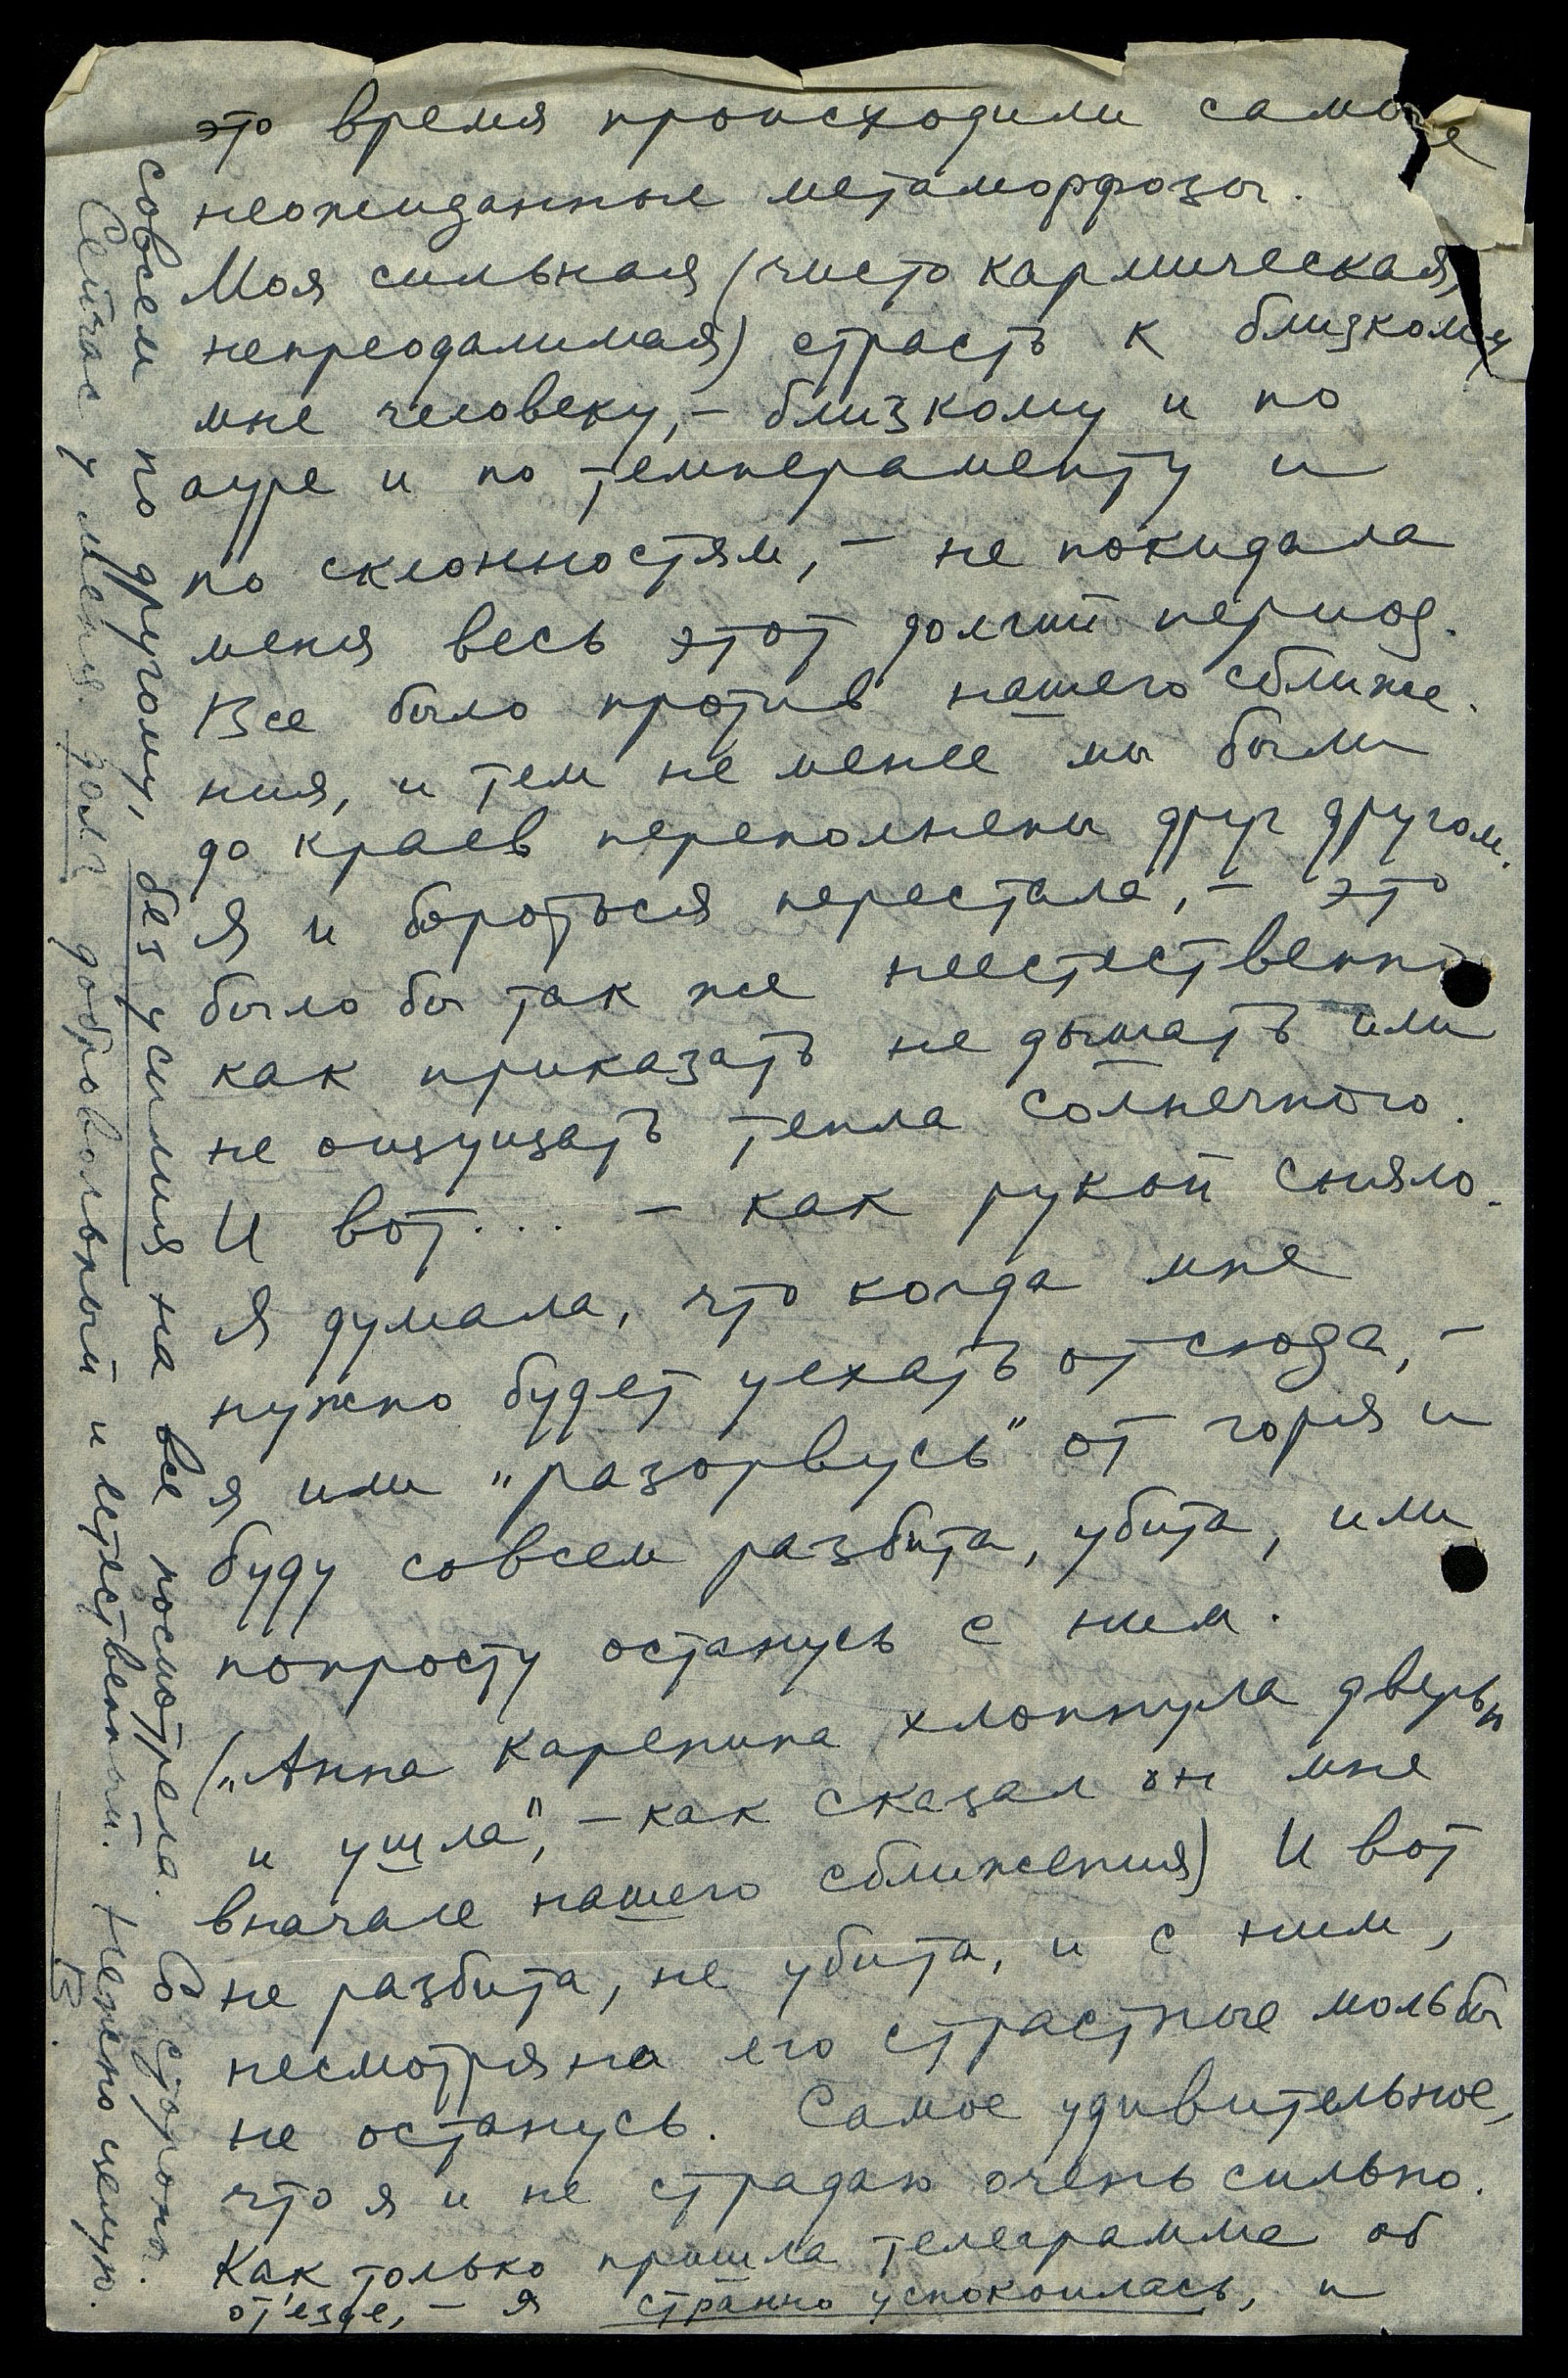 это время происходили самые
неожиданные метаморфозы.
Моя сильная (чисто кармическая,
непреодолимая) страсть к близкому
мне человеку, – близкому и по
ауре и по темпераменту и
по склонностям, – не покидала
меня весь этот долгий период.
Все было против нашего сближе-
ния, и тем не менее мы были
до краев переполнены друг другом.
Я и бороться перестала, – это
было бы так же неестественно
как приказать не дышать или
не ощущать тепла солнечного.
И вот... – как рукой сняло.
Я думала, что когда мне
нужно будет уехать отсюда, –
я или „разорвусь" от горя и
буду совсем разбита, убита, или
попросту останусь с ним.
(„Анна Каренина хлопнула дверью
и ушла", – как сказал он мне
вначале нашего сближения) И вот
не разбита, не убита, и с ним,
несмотря на его страстные мольбы
не останусь. Самое удивительное,
что я и не страдаю очень сильно.
Как только пришла телеграмма об
от'езде, – я странно успокоилась, и
совсем по другому, без усилия на все посмотрела. Со стороны.
Сейчас у меня долг добровольный и естественный. Нежно целую.
В.